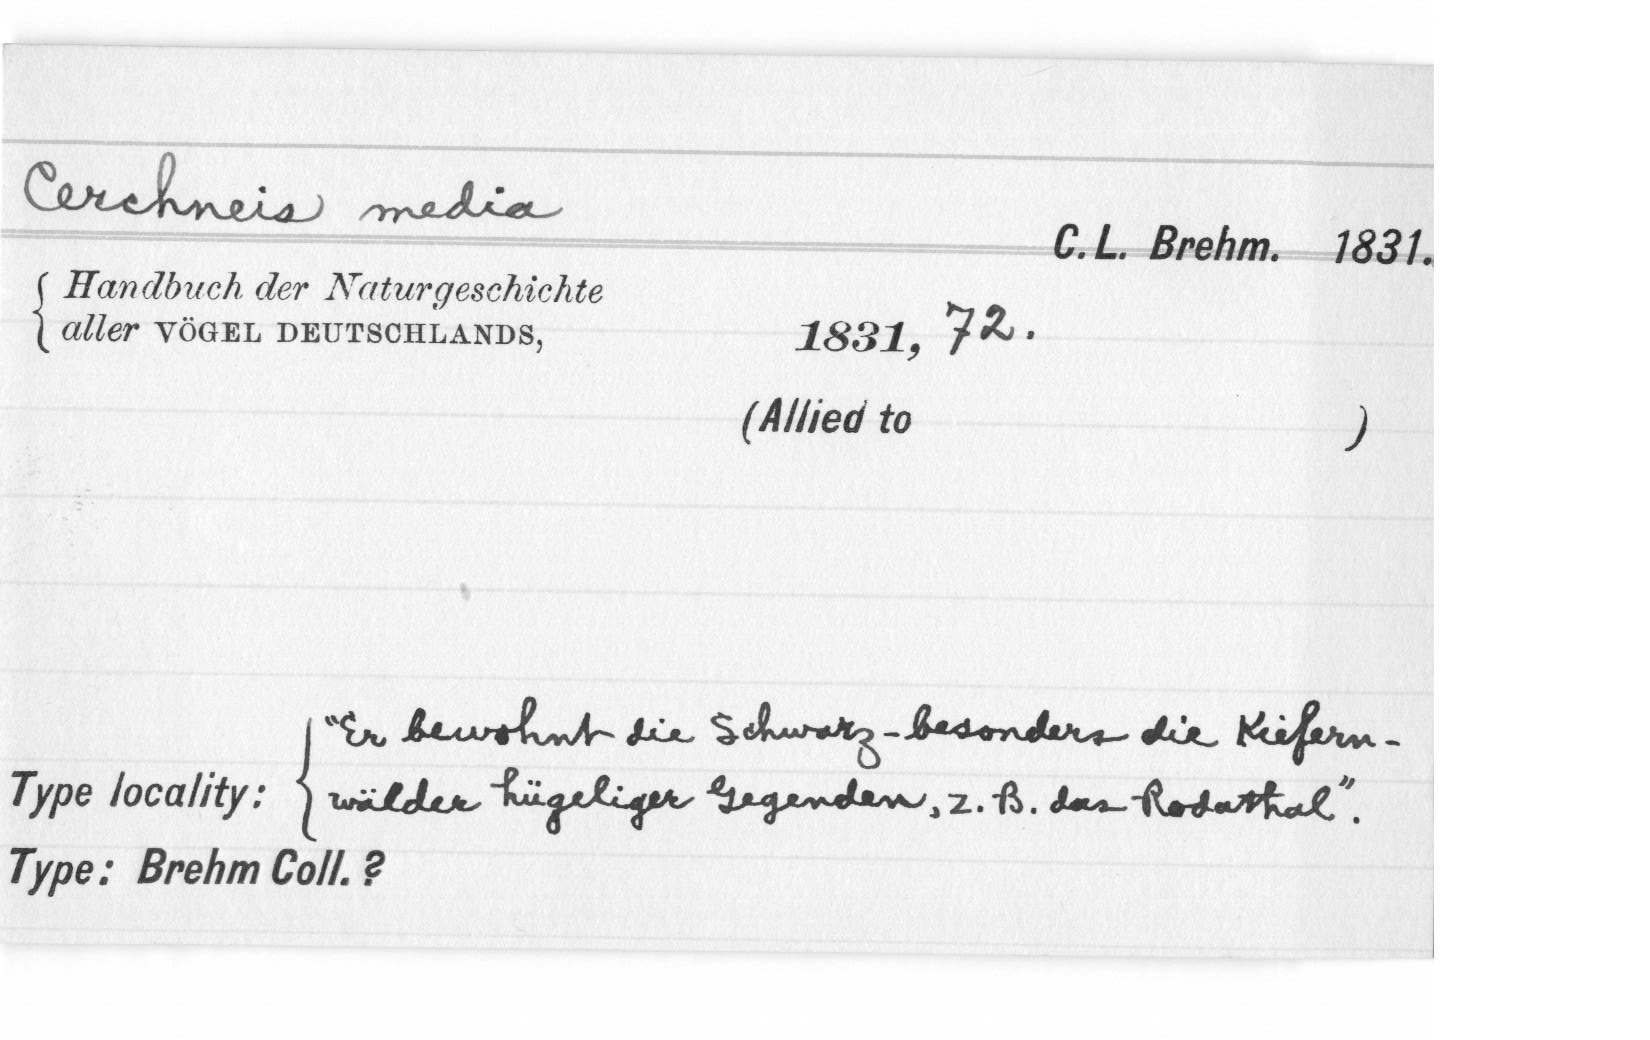 Cerchneis media
C. L. Brehm. 1831.
Handbuch der Naturgeschichte
aller VÖGEL DEUTSCHLANDS, 1831, 72.
(Allied to )
"Er bewohnt die Schwarz-besonders die Kiefern-
Type locality: wälder hügeliger Gegenden, z. B. das Rodathal".
Type: Brehm Coll. ?